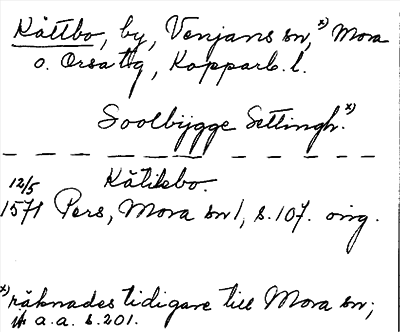 Kåttbo, by, Venjans sn,x) Mora
o. Orsa tg, Kopparb. l.
Soolbijgge Settingh.x)
Kåtiksbo.
12/5
1571 Pers, Mora sn 1, s. 107. orig.
x) räknades tidigare till Mora sn;
a.a. s. 201.